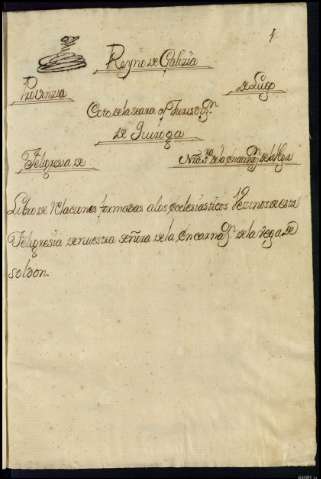 1
Reyno de Galizia
Probinzia de Lugo
Coto de la Seara y Jurisdⁿ
De Quiroga
Feligresia de Nrâ Srâ de la encarnⁿ de la Vega
Libro de Relaciones formadas a los ecclesiásticos Vezinos de esta
Feligresia de nuestra señora de la encarnaⁿ de la vega de
Soldon.